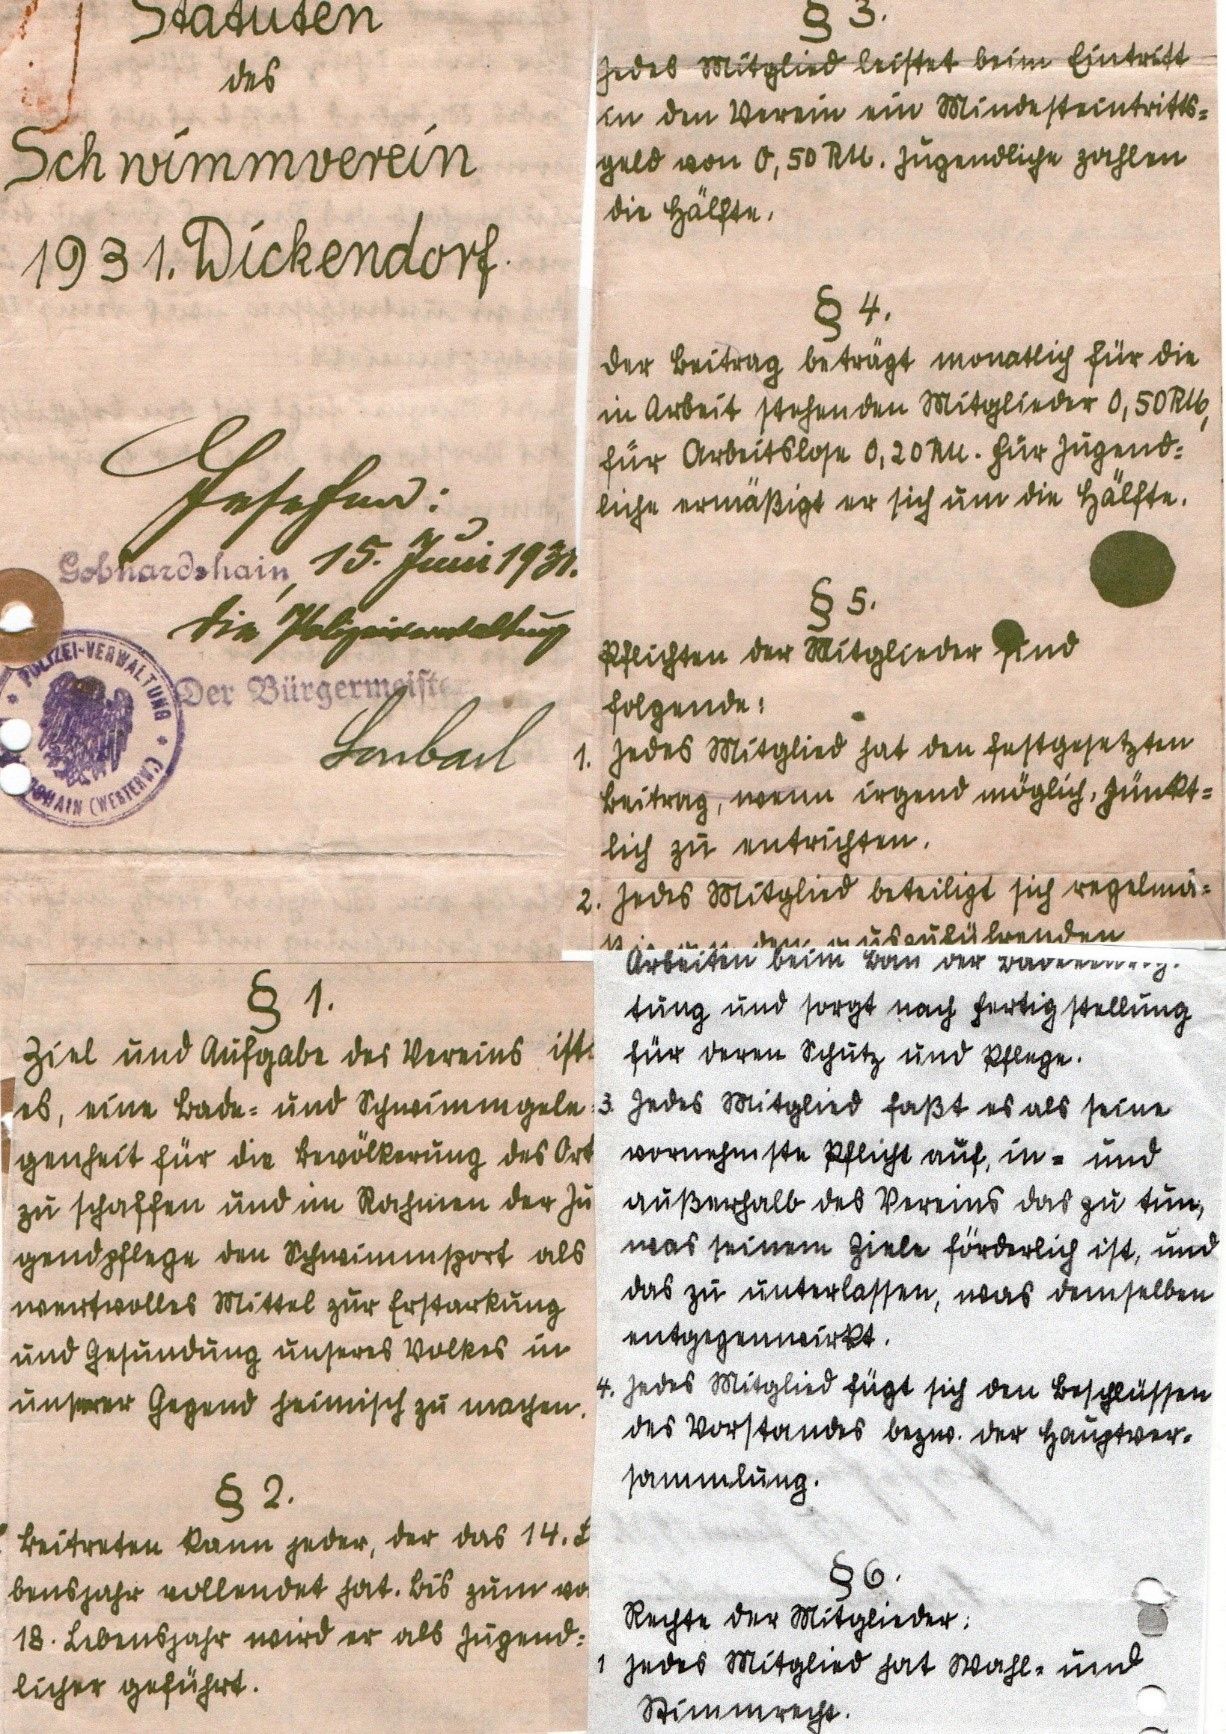 Statuten
des
Schwimmverein
1931. Dickendorf.
Gesehen:
Gebhardshain, 15. Juni 1931.
Die Polizeiverwaltung
Der Bürgermeister
POLIZEI-VERWALTUNG
HAIN (WESTERW.)
§ 1.
Ziel und Aufgabe des Vereins ist
es, eine Bade= und Schwimmgele=
genheit für die Bevölkerung des Ort
zu schaffen und im Rahmen der Ju
gendpflege den Schwimmsport als
wertvolles Mittel zur Erstarkung
und Gesundung unseres Volkes in
unserer Gegend heimisch zu machen.
§ 2.
Beitreten kann jeder, der das 14. L
bensjahr vollendet hat. Bis zum vo
18. Lebensjahr wird er als Jugend=
licher geführt.
§ 3.
Jedes Mitglied leistet beim Eintritt
in den Verein ein Mindesteintritts=
geld von 0,50 RM. Jugendliche zahlen
die Hälfte.
§ 4.
Der Beitrag beträgt monatlich für die
in Arbeit stehenden Mitglieder 0,50 RM,
für Arbeitslose 0,20 RM. Für Jugend=
liche ermäßigt er sich um die Hälfte.
§ 5.
Pflichten der Mitglieder sind
folgende:
1. Jedes Mitglied hat den festgesetzten
Beitrag, wenn irgend möglich, pünkt=
lich zu entrichten.
2. Jedes Mitglied beteiligt sich regelmä=
ßig an den auszuführenden
Arbeiten beim Bau der
tung und sorgt nach Fertigstellung
für deren Schutz und Pflege.
3. Jedes Mitglied faßt es als seine
vornehmste Pflicht auf, in= und
außerhalb des Vereins das zu tun,
was seinem Ziele förderlich ist, und
das zu unterlassen, was demselben
entgegenwirkt.
4. Jedes Mitglied fügt sich den Beschlüssen
des Vorstandes bezw. der Hauptver=
sammlung.
§ 6.
Rechte der Mitglieder:
1 Jedes Mitglied hat Wahl= und
Stimmrecht.